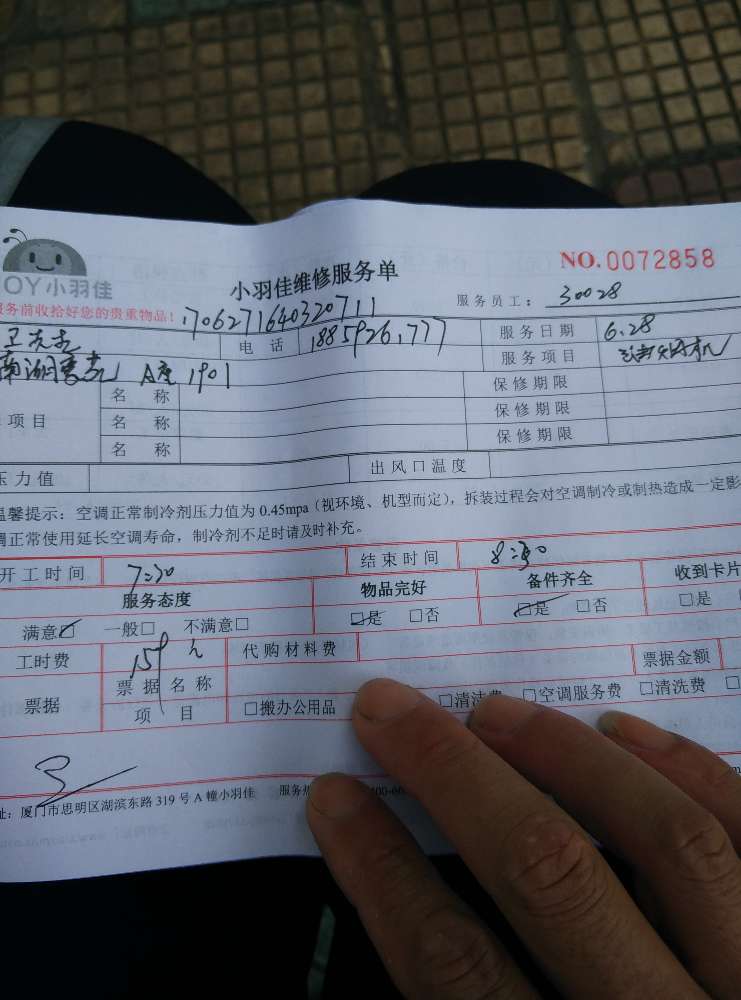 OY小羽佳
小羽佳维修服务单
NO.0072858
务前收拾好您的贵重物品!
170627164032071 1
服务员工: 30028
电 话 1885926,777
服务日期 6.28
南湖 A座 1901
服务项目
项目 名 称 保修期限
名 称 保修期限
名 称 保修期限
压力值 出风口温度
温馨提示:空调正常制冷剂压力值为 0.45mpa(视环境、机型而定),拆装过程会对空调制冷或制热造成一定影
调正常使用延长空调寿命,制冷剂不足时请及时补充。
开工时间 7:30 结束时间 8:30
服务态度 物品完好 备件齐全 收到卡片
满意☑ 一般□ 不满意□ ☑是 □否 ☑是 □否 □是
工时费 159 代购材料费
票据 票据名称 票据金额
项 目 □搬办公用品 □清洁费 □空调服务费 □清洗费 □
址:厦门市思明区湖滨东路 319 号 A 幢小羽佳 服务